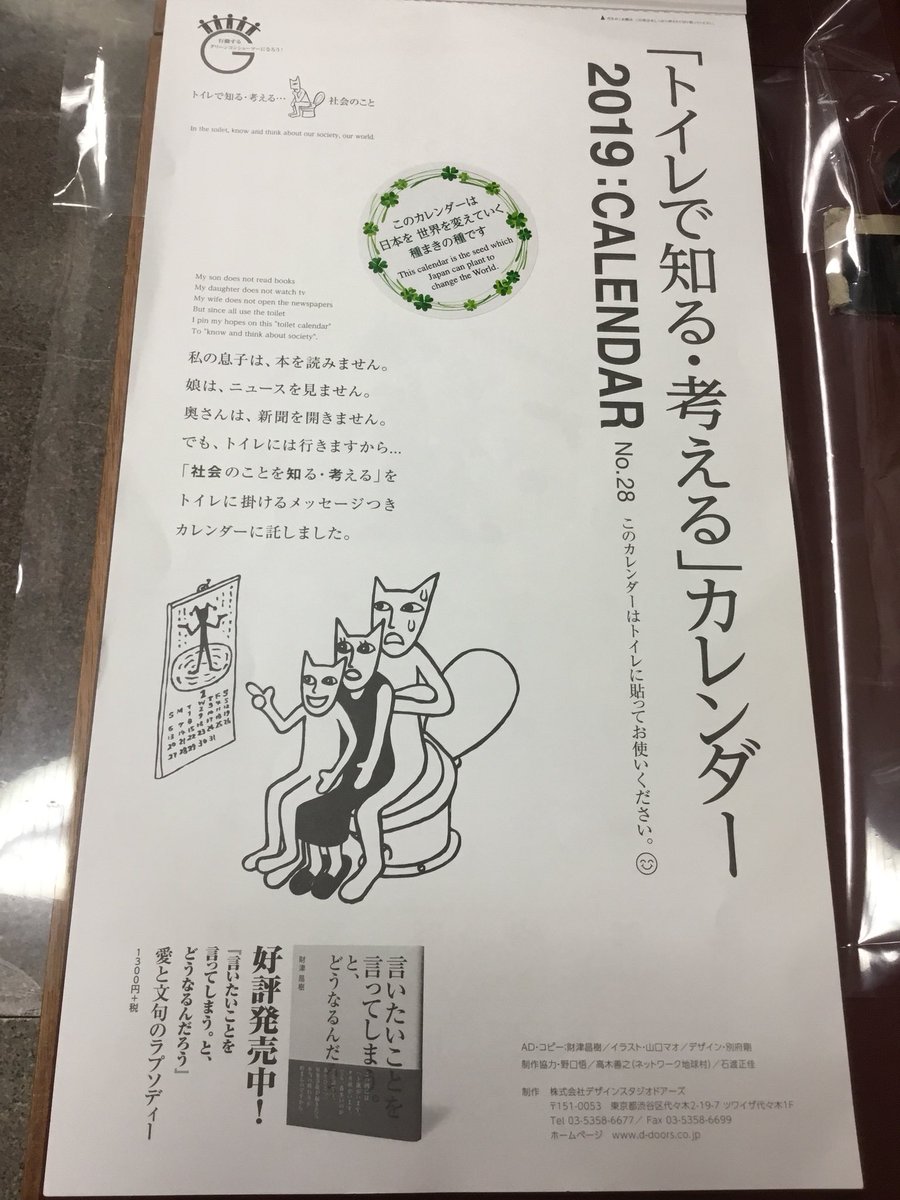 「トイレで知る・考える」カレンダー
2019:CALENDAR No.28 このカレンダーはトイレに貼ってお使いください。
行動する
グリーンコンシューマーになろう!
トイレで知る・考える… 社会のこと
In the toilet, know and think about our society, our world.
このカレンダーは
日本を 世界を変えていく
種まきの種です
This calendar is the seed which
Japan can plant to
change the World.
My son does not read books
My daughter does not watch tv
My wife does not open the newspapers
But since all use the toilet
I pin my hopes on this "toilet calendar"
To "know and think about society".
私の息子は、本を読みません。
娘は、ニュースを見ません。
奥さんは、新聞を開きません。
でも、トイレには行きますから…
「社会のことを知る・考える」を
トイレに掛けるメッセージつき
カレンダーに託しました。
1
S M T W T F S
1 2 3 4 5
6 7 8 9 10 11 12
13 14 15 16 17 18 19
20 21 22 23 24 25 26
27 28 29 30 31
言いたいことを
言ってしまう。
と、
どうなるんだ
財津昌樹
好評発売中!
『言いたいことを
言ってしまう。と、
どうなるんだろう』
愛と文句のラプソディー
1300円+税
AD・コピー:財津昌樹/イラスト・山口マオ/デザイン・別府剛
制作協力・野口悟/高木善之(ネットワーク地球村)/石渡正佳
制作 株式会社デザインスタジオドアーズ
〒151-0053 東京都渋谷区代々木2-19-7 ツワイザ代々木1F
Tel 03-5358-6677/ Fax 03-5358-6699
ホームページ www.d-doors.co.jp